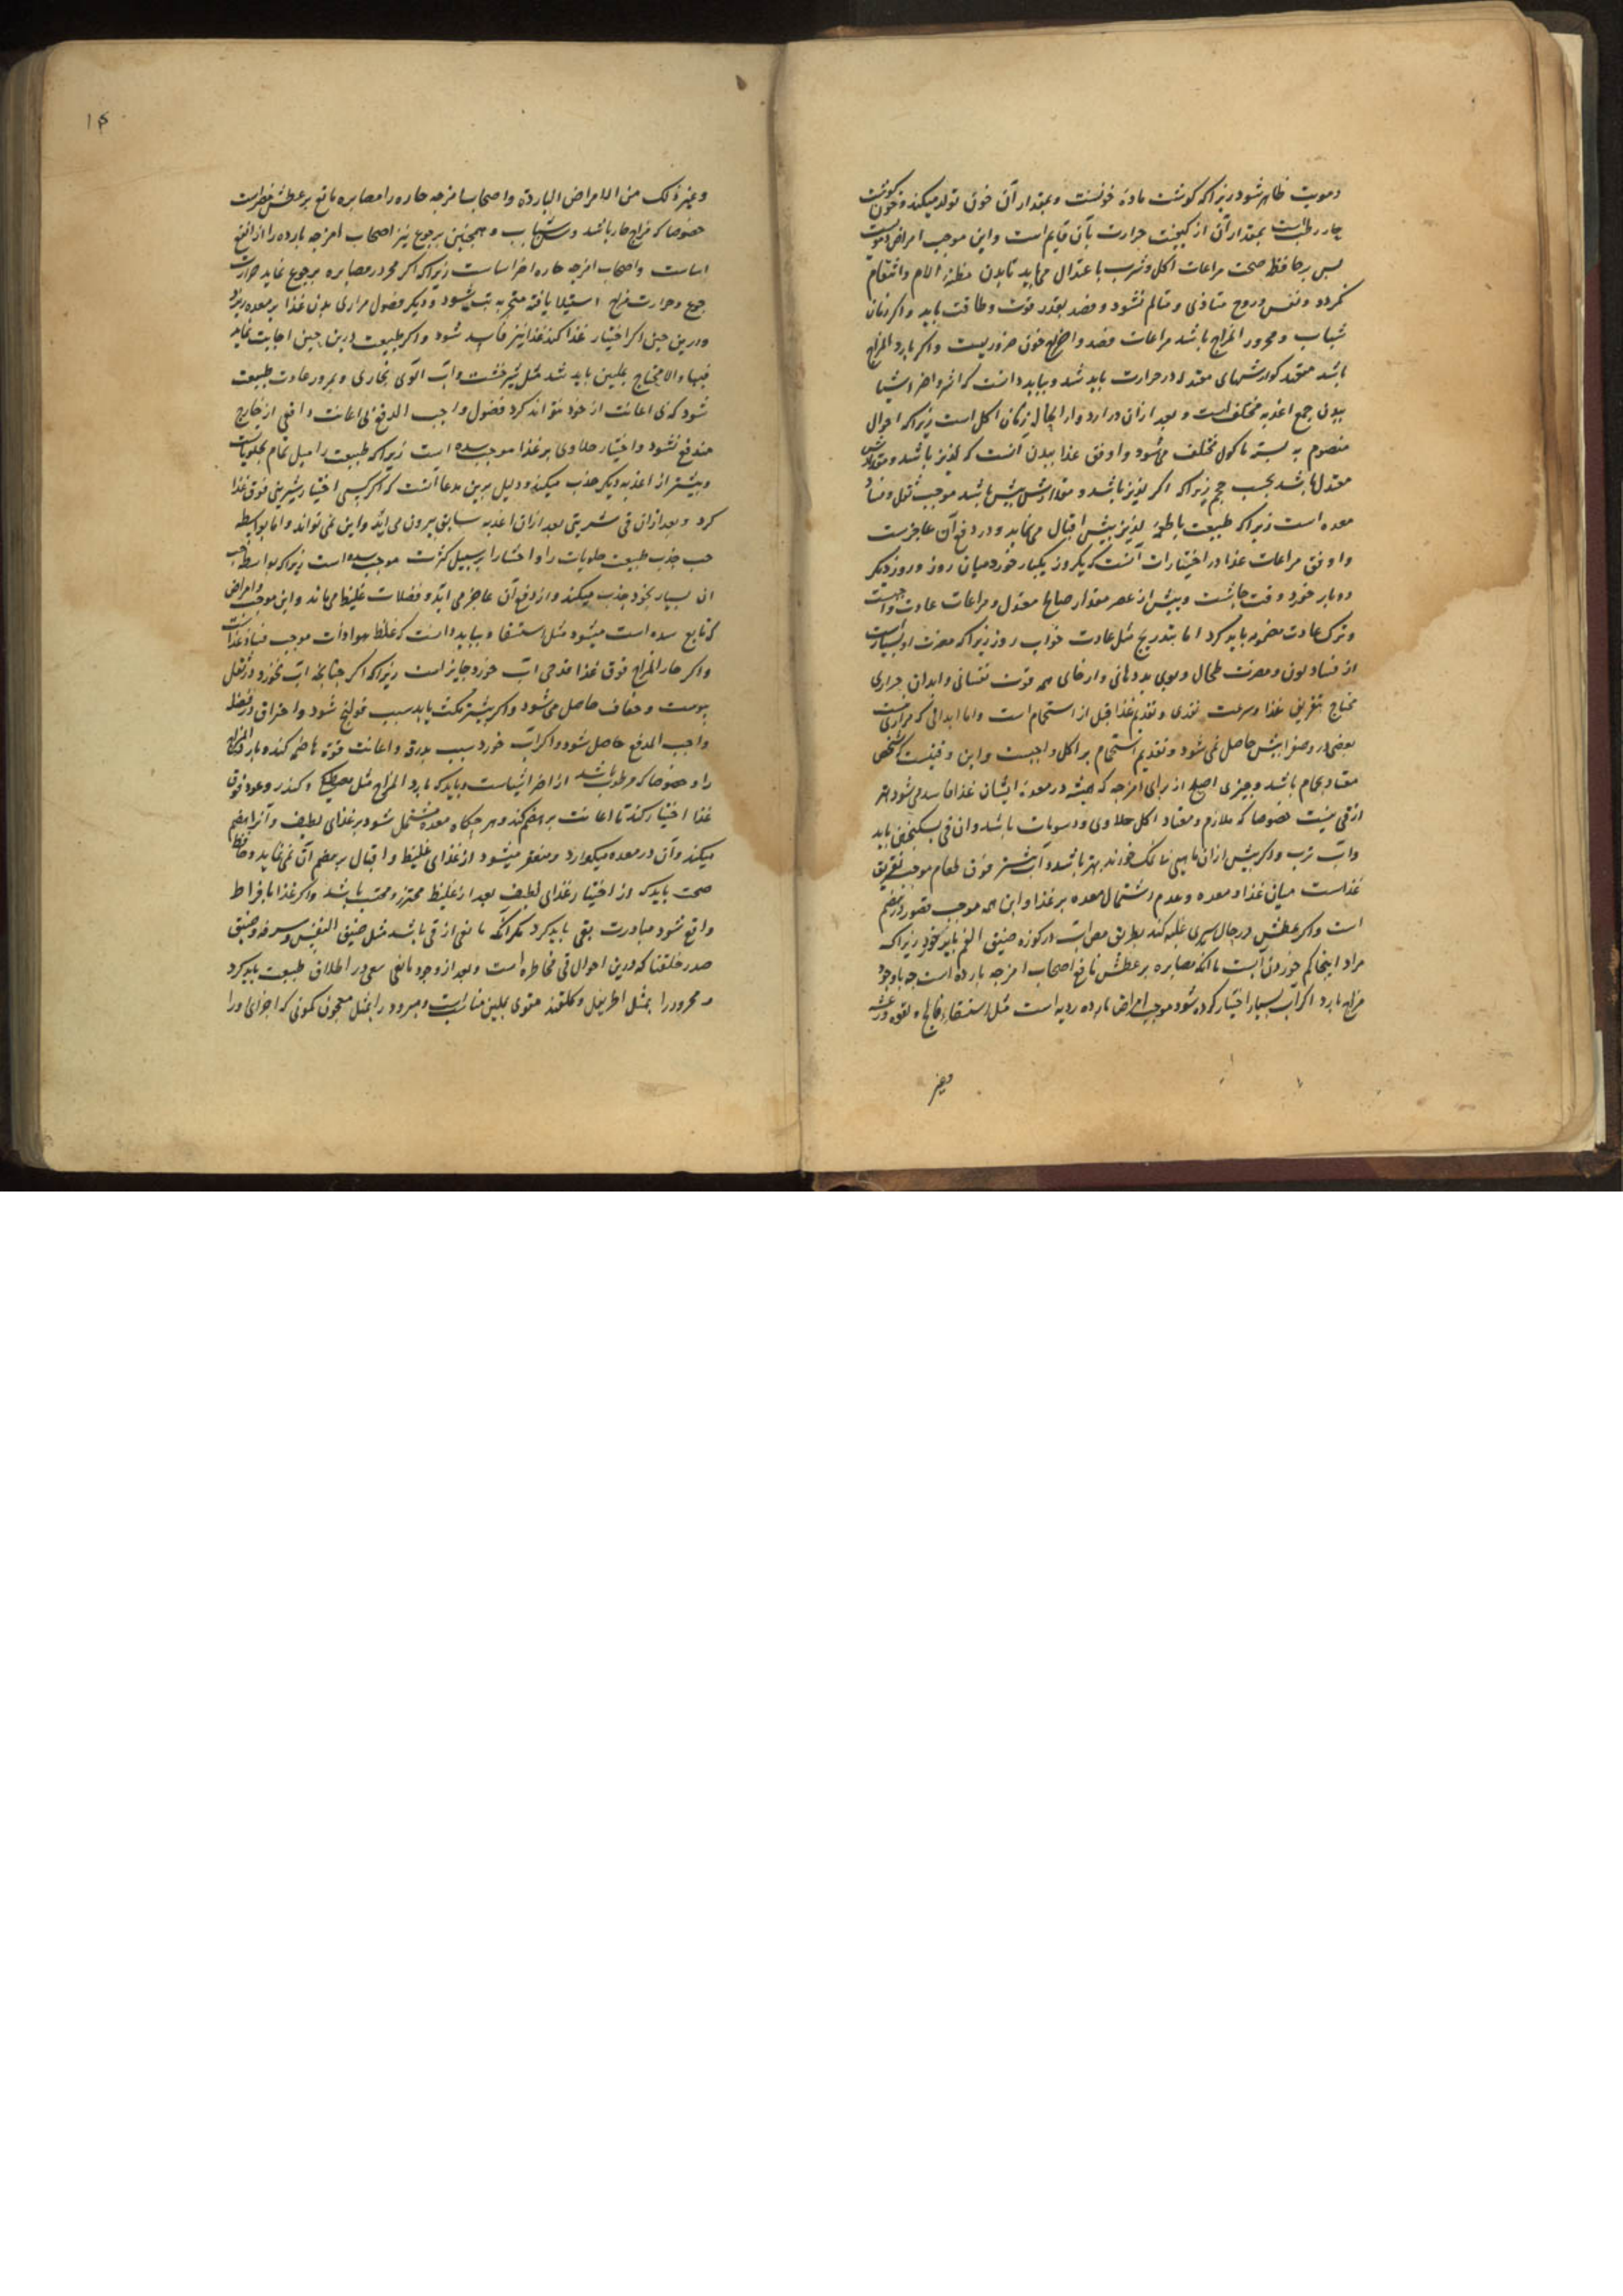 دمویت ظاهر شود زیرا که کوشت ماده خونست و بمقدار آن خون تولد میکند و خون کوشت
حار رطب است بمقدار آن از کیفیت حرارت بآن قایم است و این موجب امراض دمویست
بس بر حافظ صحت مراعات اکل و شرب باعتدال می باید تا بدن مظنه الام و انتقام
نکردد و نفس و روح متاذی و متالم نشود و فصد بقدر قوت و طاقت باید و اکر زمان
شباب و محرور المزاج باشد مراعات فصد و اخراج خون ضروریست و اکر بارد المزاج
باشد معتقد کوارشهای معتدله در حرارت باید شد و بباید دانست که اثر و اضر اشیا
ببدن جمع اغذیه مختلف است و بعد ازان در ازدوار ایکال زمان اکل است زیرا که احوال
منضوم به بسته ماکول مختلف می شود و اوفق غذا ببدن آنست که لذیذ باشد و مقدارش
معتدل باشد بحسب حجم زیرا که اکر لذیذ باشد و مقدارش بیش باشد موجب ثقل و فساد
معده است زیرا که طبیعت باطعمه لذیذ بیش اقبال می نماید و در دفع آن عاجزست
و اوفق مراعات غذا در اختیارات آنست که یکروز یکبار خورد میان روز و روز دیکر
دوبار خورد وقت چاشت و بیش از عصر مقدار صالحا معتدل و مراعات عادت واجبست
و ترک عادت مضمومه باید کرد اما بتدریج مثل عادت خواب روز زیرا که مضرت او بسیارست
از فساد لون و مضرت طحال و بوی بد دهانی و ارخای همه قوت نفسانی و ابدان حراری
محتاج بتفریق غذا و سرعت تغذی و تقدیم غذا قبل از استحمام است و اما ابدانی که مراری نیست
بعضی در وصفرا بیش حاصل نمی شود و تقدیم استحمام بر اکل واجبست و این وقتیست که شخص
معتاد بحمام باشد و چیزی اصلح از برای امزجه که همیشه در معده ایشان غذا فاسد می شود بهتر
از قی نیست خصوصا که ملازم و معتاد اکل حلاوی و دسومات باشد و ان قی بسکنجبین باید
و آب ترب و اکر بیش ازان ماهی نمکسود خورند بهتر باشد و آب بیشتر فوق طعام موجب تفریق
غذاست میان غذا و معده و عدم اشتمال معده بر غذا و این همه موجب قصور در هضم
است و اکر عطش در حال سیری غلبه کند بطریق مص آب در کوزه ضیق الفم باید خورد زیرا که
مراد اینجا کم خوردن آبست با آنکه مصابره بر عطش نافع اصحاب امزجه بارده است چه با وجود
مزاج بارد اکر آب بسیار اختیار کرده شود موجب امراض بارده ردیه است مثل استسقا و فالج و لقوه و رعشه
وغیر
۱۴
وغیر ذلک من الامراض البارده و اصحاب امزجه حاره را مصابره مانع بر عطش مضرست
خصوصا که مزاج حار باشد و سن شباب و همچنین برجوع نیز اصحاب امزجه بارده را از انفع
اساست و اصحاب امزجه حاره اضر اساست زیرا که اکر محرور مصابره برجوع نماید حرارت
جوع و حرارت مزاج استیلا یافته منجر به تب شود و دیکر فضول مراری بدن غذا بر معده ریزد
و درین حین اکر اختیار غذا کند غذا نیز فاسد شود و اکر طبیعت درین حین اجابت نماید
فبها و الا محتاج بملین باید شد مثل شیر خشت و آب آلوی بخاری و بمرور عادت طبیعت
شود که بی اعانت از خود نتواند کرد فضول واجب الدفع بی اعانت دافعی از خارج
مندفع نشود و اختیار حلاوی بر غذا موجب سده است زیرا که طبیعت را میل تمام بحلویات
و بیشتر از اغذیه دیکر جذب میکند و دلیل برین مدعا آنست که اکر کسی اختیار شیرینی فوق غذا
کرد و بعد ازان قی شیرینی بعد ازان اغذیه سابق بیرون می آید و این نمی تواند و اما بواسطه
حب جذب طبیعت حلویات را و اختیار بر سبیل کثرت موجب سده است زیرا که بواسطه حب
ان بسیار بخود جذب میکند و از دفع آن عاجز می آید و فضلات غلیظ می ماند و این موجب امراض
که تابع سده است میشود مثل استسقا و بباید دانست که غلظ هوا و آب موجب فساد غذاست
و اکر حار المزاج فوق غذا قدحی آب خورد جایز است زیرا که اکر چنانچه آب نخورد در ثفل
یبوست و جفاف حاصل می شود و اکر بیشتر مکث یابد سبب قولنج شود و احتراق در فضله
واجب الدفع حاصل شود و اکر آب خورد سبب بدرقه و اعانت قوه هاضمه کند و بارد المزاج
را و خصوصا که مرطوب باشد از اضر اشیاست و باید که بارد المزاج مثل مصطکی و کندر و عود فوق
غذا اختیار کند تا اعانت بر هضم کند و هر چکاه معده مشتمل شود بر غذای لطیف و آنرا هضم
میکند و آن در معده میکوارد و متعفر میشود از غذای غلیظ و اقبال بر هضم آن نمی نماید و حافظ
صحت باید که از اختیار غذای لطیف بعد از غلیظ محترز و مجتنب باشد و اکر غذا بافراط
واقع شود مبادرت بقی باید کرد مکر آنکه مانعی از قی باشد مثل ضیق النفس و سرفه و ضیق
صدر خلقتا که درین احوال قی مخاطره است و بعد از وجود مانعی سعی در اطلاق طبیعت باید کرد
و محرور را بمثل اطریفل و کلقند مقوی بملین مناسبست و مبرود را بمثل معجون کمونی که اجزای او را